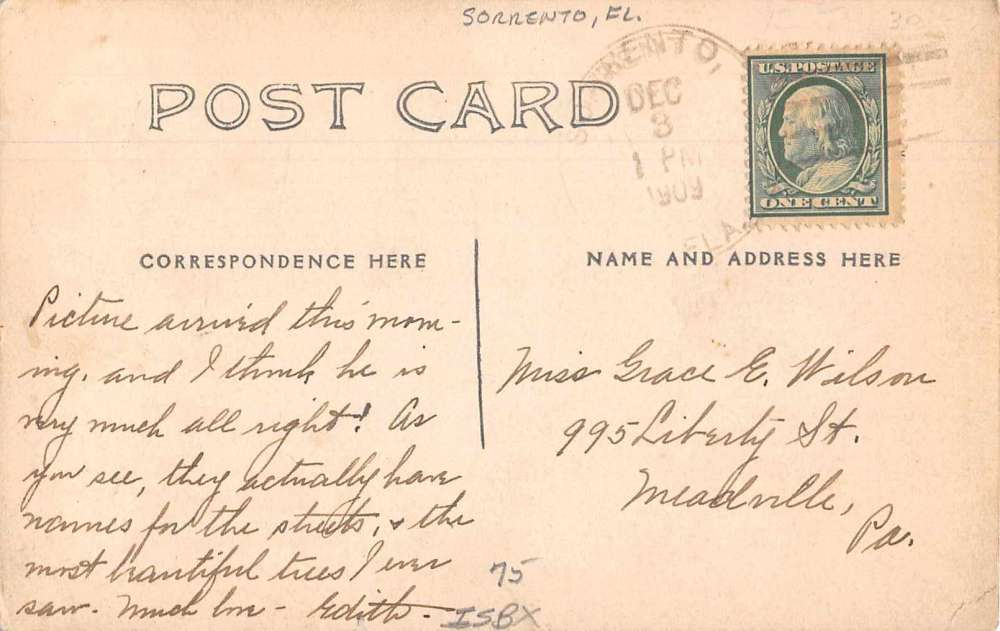 SORRENTO, FL.
POST CARD
SORRENTO,
DEC
8
1 PM
1909
FLA.
U.S. POSTAGE
ONE CENT
CORRESPONDENCE HERE
Picture arrived this morn-
ing, and I think he is
very much all right! As
you see, they actually have
names for the streets, & the
most beautiful trees I ever
saw. Much love - Edith.
NAME AND ADDRESS HERE
Miss Grace E. Wilson
995 Liberty St.
Meadville,
Pa.
75
ISBX